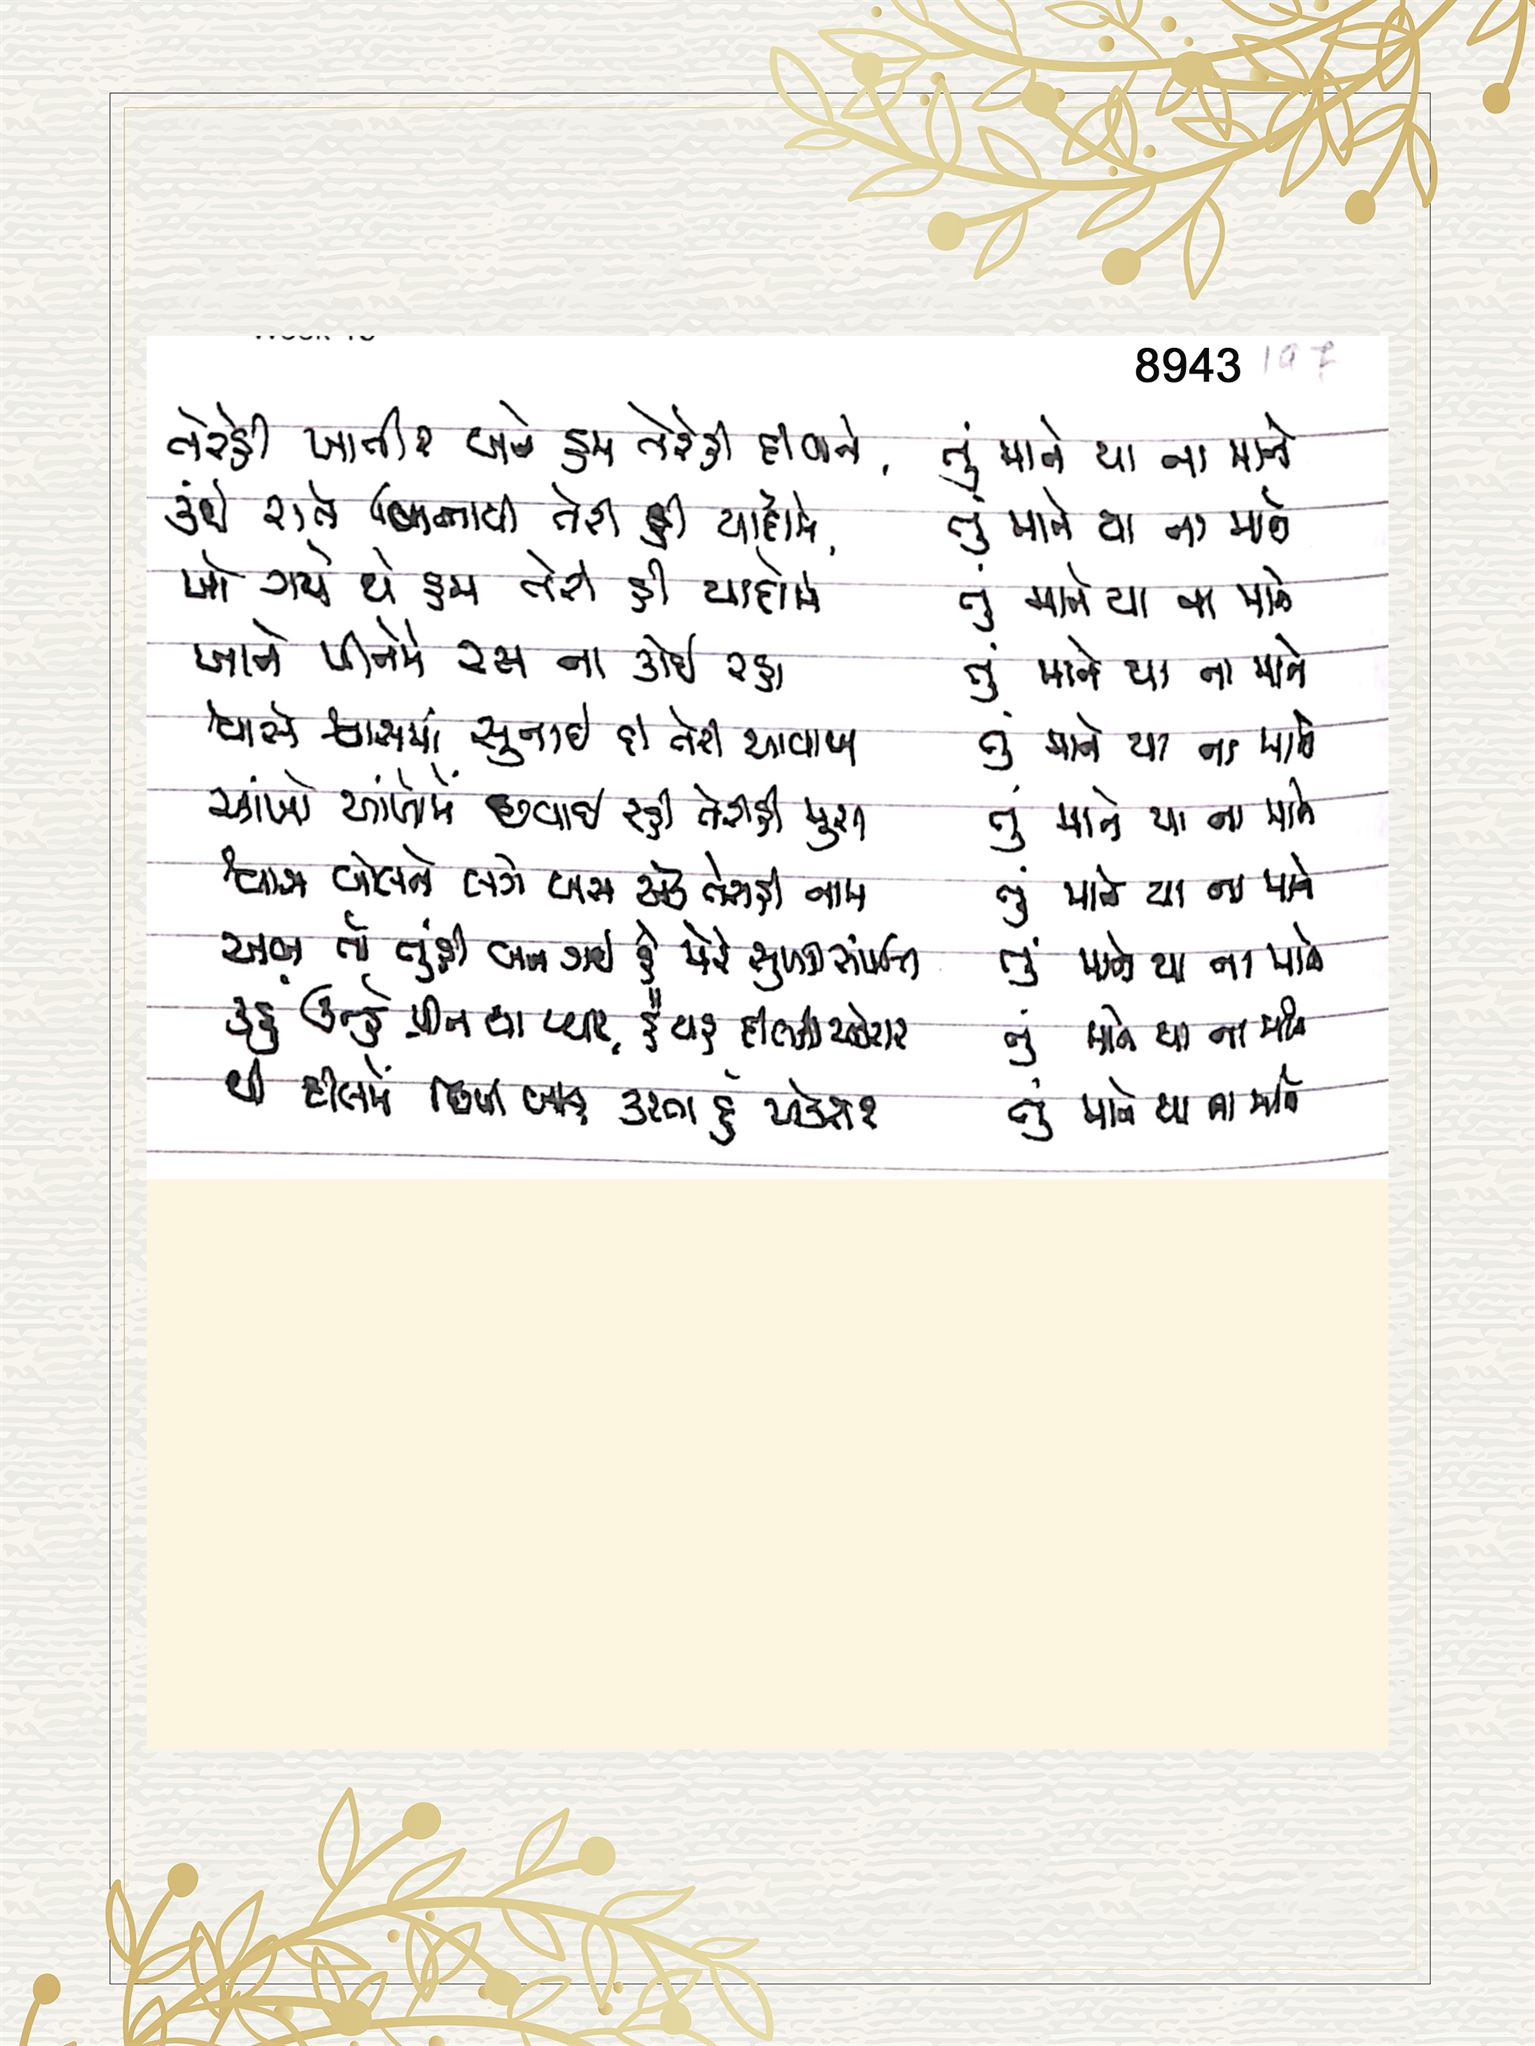 8943 197
તેરેહી ખાતીર બને હમ તેરેહી દીવાને, તું માને યા ના માને
કંઈ રાતે બિતાયી તેરી હી યાદોમે, તું માને યા ના માને
ખો ગયે થે હમ તેરી હી યાદોમે તું માને યા ના માને
ખાને પીનેમેં રસ ના કોઈ રહા તું માને યા ના માને
શ્વાસે શ્વાસમાં સુનાઈ દી તેરી આવાજ તું માને યા ના માને
આંખો આંખોમેં છવાઈ રહી તેરીહી મુરત તું માને યા ના માને
શ્વાસ બોલને લગે બસ એક તેરાહી નામ તું માને યા ના માને
અબ તો તુંહી બન ગઈ હે મેરે સુખકી સંપત્તિ તું માને યા ના માને
કહું ઉન્હે પ્રીત યા પ્યાર, હૈ યહ દીલકી તું માને યા ના માને
થી દીલમેં છિપી બાત કરતા હું તું માને યા ના માને